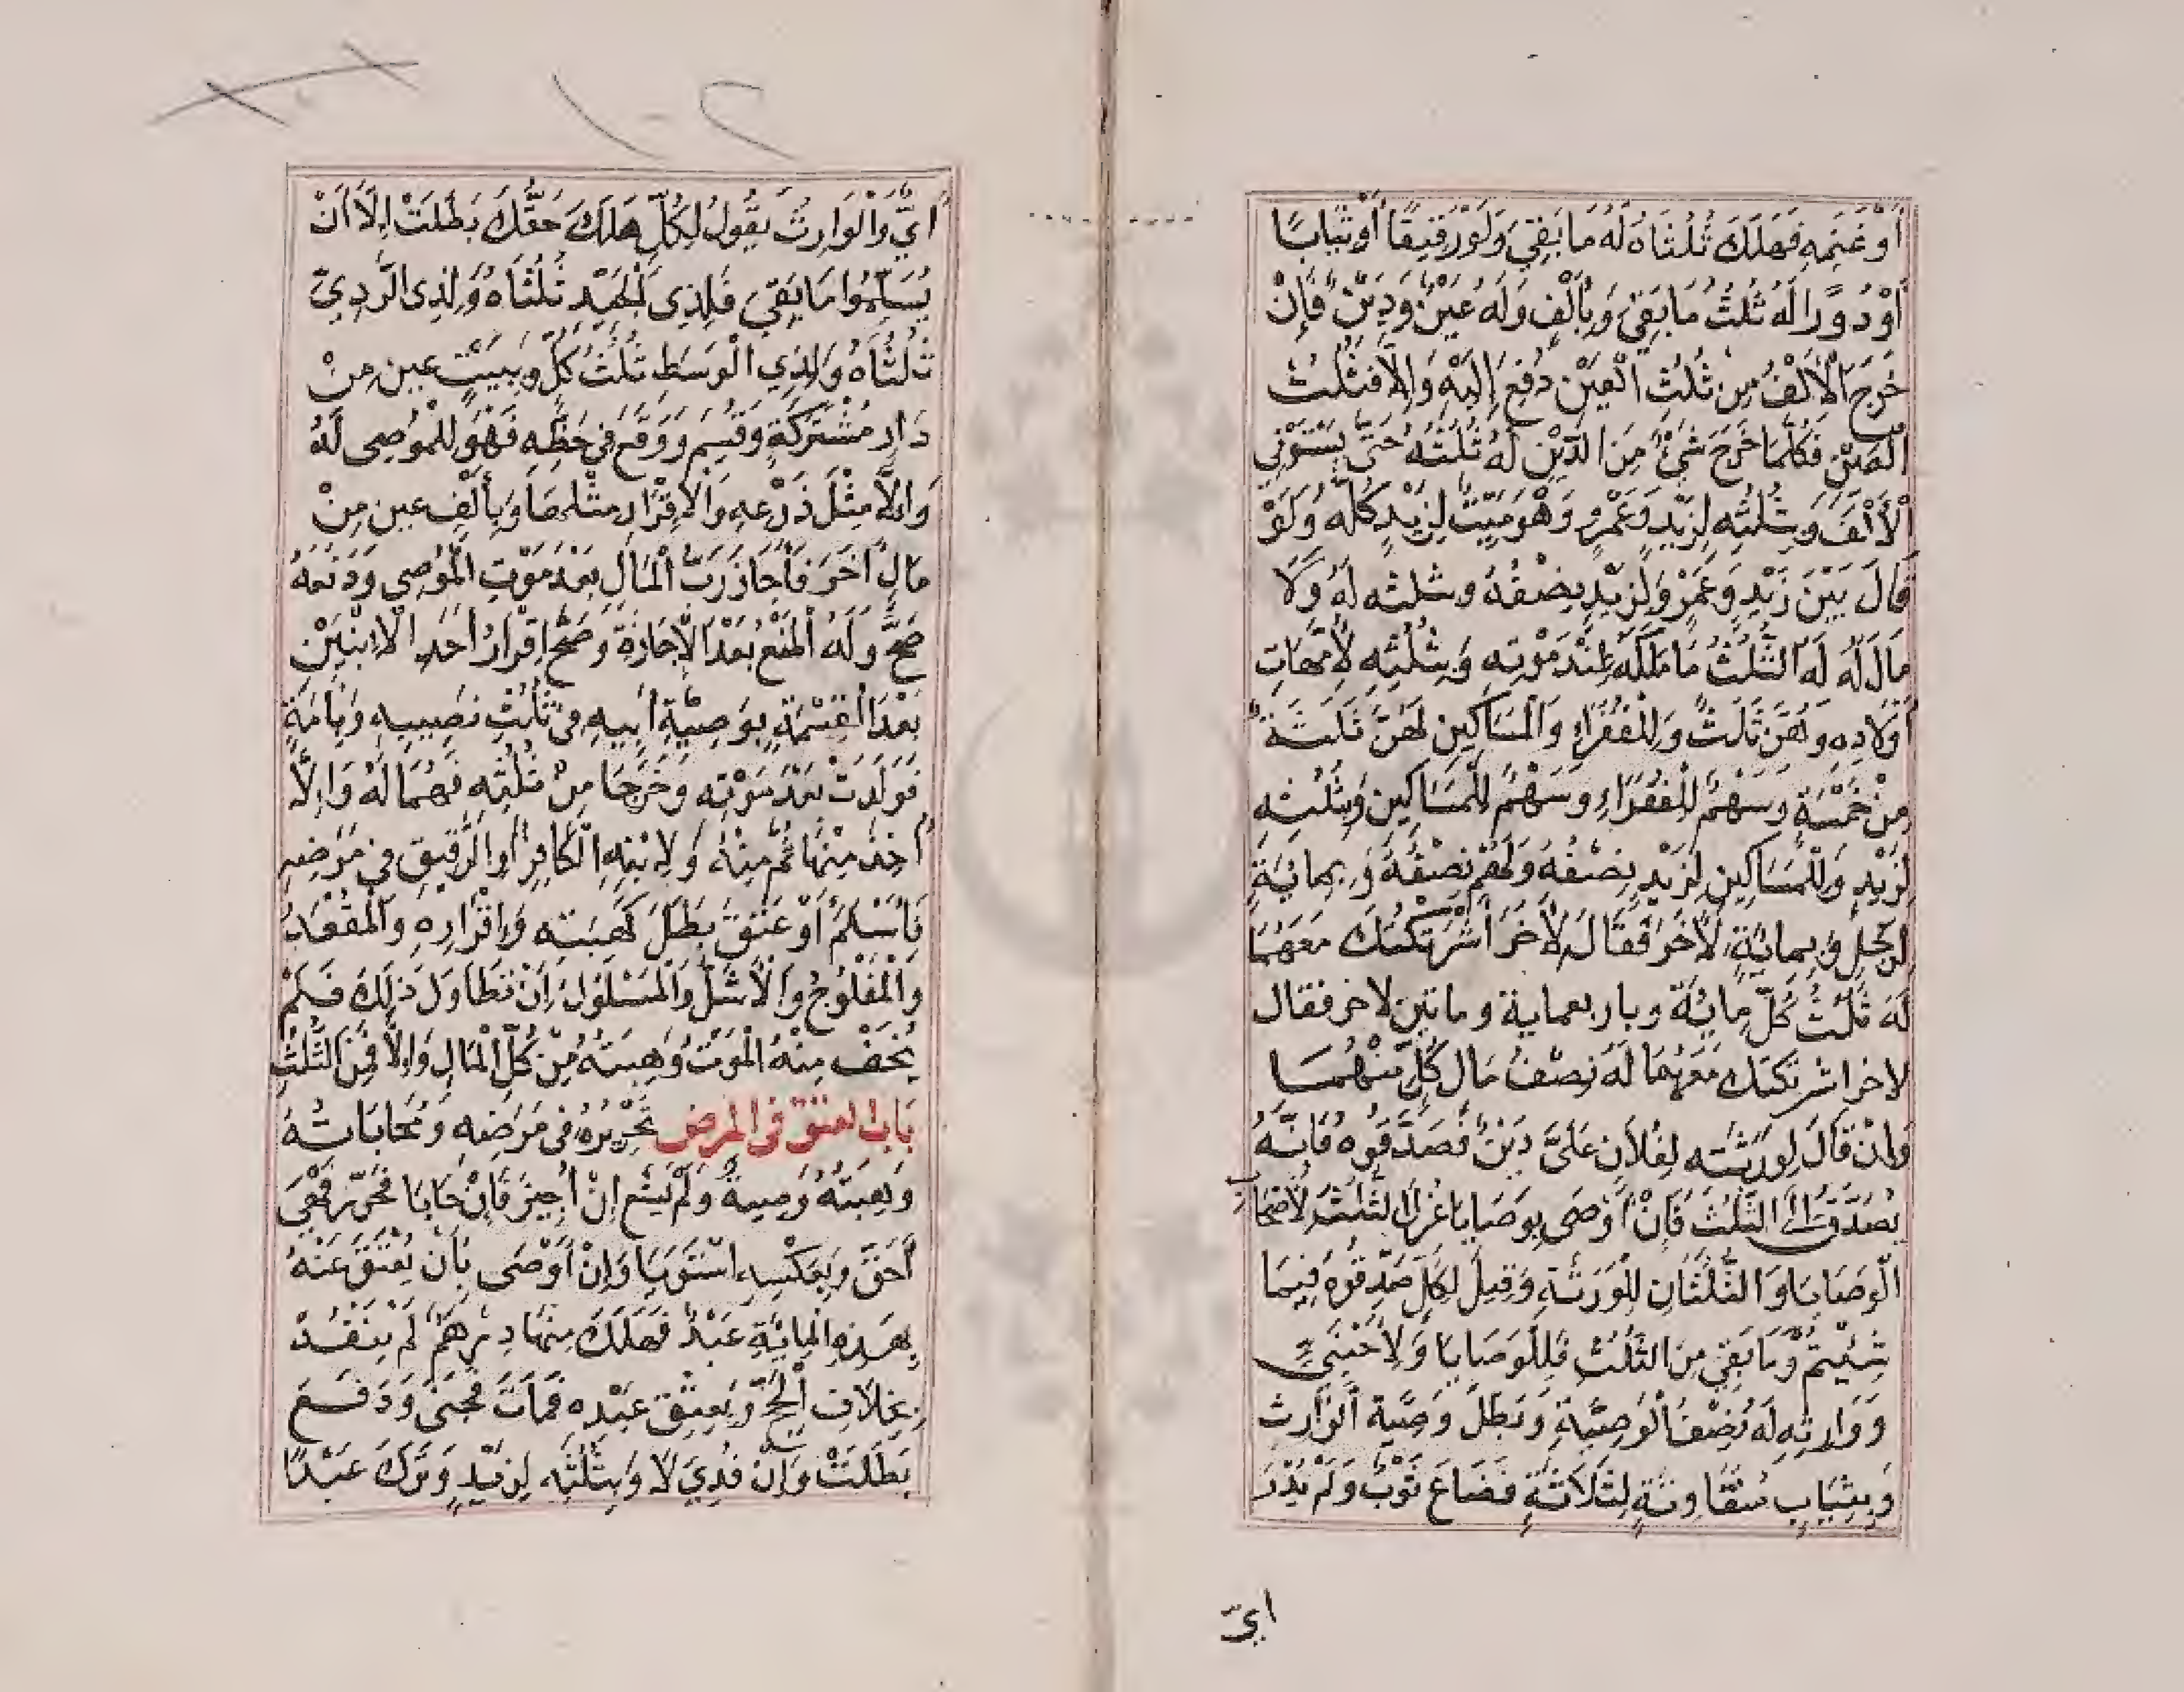 أَوْ غَنَمِهِ فَهَلَكَ ثُلُثَاهُ لَهُ مَا بَقِيَ وَلَوْ رَقِيقًا أَوْ ثِيَابًا
أَوْ دُوَرًا لَهُ ثُلُثُ مَا بَقِيَ وَبِأَلْفٍ وَلَهُ عَيْنٌ وَدَيْنٌ فَإِنْ
خَرَجَ الْأَلْفُ مِنْ ثُلُثِ الْعَيْنِ دُفِعَ إِلَيْهِ وَإِلَّا فَثُلُثُ
الْعَيْنِ فَكُلَّمَا خَرَجَ شَيْءٌ مِنَ الدَّيْنِ لَهُ ثُلُثُهُ حَتَّى يَسْتَوْفِي
الْأَلْفَ وَبِثُلُثِهِ لِزَيْدٍ وَعَمْرٍو وَهُوَ مَيِّتٌ لِزَيْدٍ كُلُّهُ وَلَوْ
قَالَ بَيْنَ زَيْدٍ وَعَمْرٍو لِزَيْدٍ نِصْفُهُ وبثلثه لَهُ وَلَا
مَالَ لَهُ لَهُ الثُّلُثُ مَا مَلَكَهُ عِنْدَ مَوْتِهِ وَبِثُلُثِهِ لِأُمَّهَاتِ
أَوْلَادِهِ وَهُنَّ ثَلَثٌ وَلِلْفُقَرَاءِ وَالْمَسَاكِينِ لَهُنَّ ثَلَثَةٌ
مِنْ خَمْسَةٍ وَسَهْمٌ لِلْفُقَرَاءِ وَسَهْمٌ لِلْمَسَاكِينِ وَبِثُلُثِهِ
لِزَيْدٍ وَلِلْمَسَاكِينِ لِزَيْدٍ نِصْفُهُ وَلَهُمْ نِصْفُهُ وَبِمِائَةٍ
لِرَجُلٍ وَبِمِائَةٍ لِآخَرَ فَقَالَ لِآخَرَ أَشْرَكْتُكَ مَعَهُمَا
لَهُ ثُلُثُ كُلِّ مِائَةٍ وباربعماية وماتين لاخر فقال
لاخر اشركتك مَعَهُمَا لَهُ نِصْفُ مَالِ كُلٍّ مِنْهُمَا
وَإِنْ قَالَ لِوَرَثَتِهِ لِفُلَانٍ عَلَيَّ دَيْنٌ فَصَدِّقُوهُ فَإِنَّهُ
يُصَدَّقُ إِلَى الثُّلُثِ فَإِنْ أَوْصَى بِوَصَايَا عُزِلَ الثُّلُثُ لِأَصْحَابِ
الْوَصَايَا وَالثُّلُثَانِ لِلْوَرَثَةِ وَقِيلَ لِكُلٍّ صَدِّقُوهُ فِيمَا
شِئْتُمْ وَمَا بَقِيَ مِنَ الثُّلُثِ فَلِلْوَصَايَا وَلِأَجْنَبِيٍّ
وَوَارِثِهِ لَهُ نِصْفُ الْوَصِيَّةِ وَبَطَلَ وَصِيَّةُ الْوَارِثِ
وَبِثِيَابٍ مُتَفَاوِتَةٍ لِثَلَاثَةٍ فَضَاعَ ثَوْبٌ وَلَمْ يُدْرَ
ايّ
أَيٌّ وَالْوَارِثُ يَقُولُ لِكُلٍّ هَلَكَ حَقُّكَ بَطَلَتْ إِلَّا أَنْ
يُسَلِّمُوا مَا بَقِيَ فَلِذِي الْجَيِّدِ ثُلُثَاهُ وَلِذِي الرَّدِيِّ
ثُلُثَاهُ وَلِذِي الْوَسَطِ ثُلُثُ كُلٍّ وَبِبَيْتٍ عين مِنْ
دَارٍ مُشْتَرَكَةٍ وَقُسِمَ وَوَقَعَ فِي حَظِّهِ فَهُوَ لِلْمُوصِي لَهُ
وَإِلَّا مِثْلُ ذَرْعِهِ وَالْإِقْرَارُ مِثْلُهَا وَبِأَلْفٍ عين مِنْ
مَالِ آخَرَ فَأَجَازَ رَبُّ الْمَالِ بَعْدَ مَوْتِ الْمُوصِي وَدَفَعَهُ
صَحَّ وَلَهُ الْمَنْعُ بَعْدَ الْإِجَازَةِ وَصَحَّ إِقْرَارُ أَحَدِ الْابْنَيْنِ
بَعْدَ الْقِسْمَةِ بِوَصِيَّةِ أَبِيهِ فِي ثُلُثِ نَصِيبِهِ وَبِأَمَةٍ
فَوَلَدَتْ بَعْدَ مَوْتِهِ وَخَرَجَا مِنْ ثُلُثِهِ فَهُمَا لَهُ وَإِلَّا
أُخِذَ مِنْهَا ثُمَّ مِنْهُ وَلِابْنِهِ الْكَافِرِ أَوِ الرَّقِيقِ فِي مَرَضِهِ
فَأَسْلَمَ أَوْ عَتَقَ بَطَلَ كَهِبَتِهِ وَإِقْرَارِهِ وَالْمُقْعَدُ
وَالْمَفْلُوجُ وَالْأَشَلُّ وَالْمَسْلُولُ إِنْ تَطَاوَلَ ذَلِكَ فَلَمْ
يُخَفْ مِنْهُ الْمَوْتُ وَهِبَتُهُ مِنْ كُلِّ الْمَالِ وَإِلَّا فَمِنَ الثُّلُثِ
بَابُ العتق في المرض تَحْرِيرُهُ فِي مَرَضِهِ وَمُحَابَاتُهُ
وَهِبَتُهُ وَصِيَّةٌ وَلَمْ يَسْعَ إِنْ أُجِيزَ فَإِنْ حَابَا فَحَرَّرَ فَهْيَ
أَحَقُّ وَبِعَكْسِهِ اسْتَوَيَا وَإِنْ أَوْصَى بِأَنْ يُعْتَقَ عَنْهُ
بِهَذِهِ الْمِائَةِ عَبْدٌ فَهَلَكَ مِنْهَا دِرْهَمٌ لَمْ يَنْفُذْ
بِخِلَافِ الْحَجِّ وَبِعِتْقِ عَبْدِهِ فَمَاتَ فَجَنَى وَدَفَعَ
بَطَلَتْ وَإِنْ فُدِيَ لَا وَبِثُلُثِهِ لِزَيْدٍ وَتَرَكَ عَبْدًا